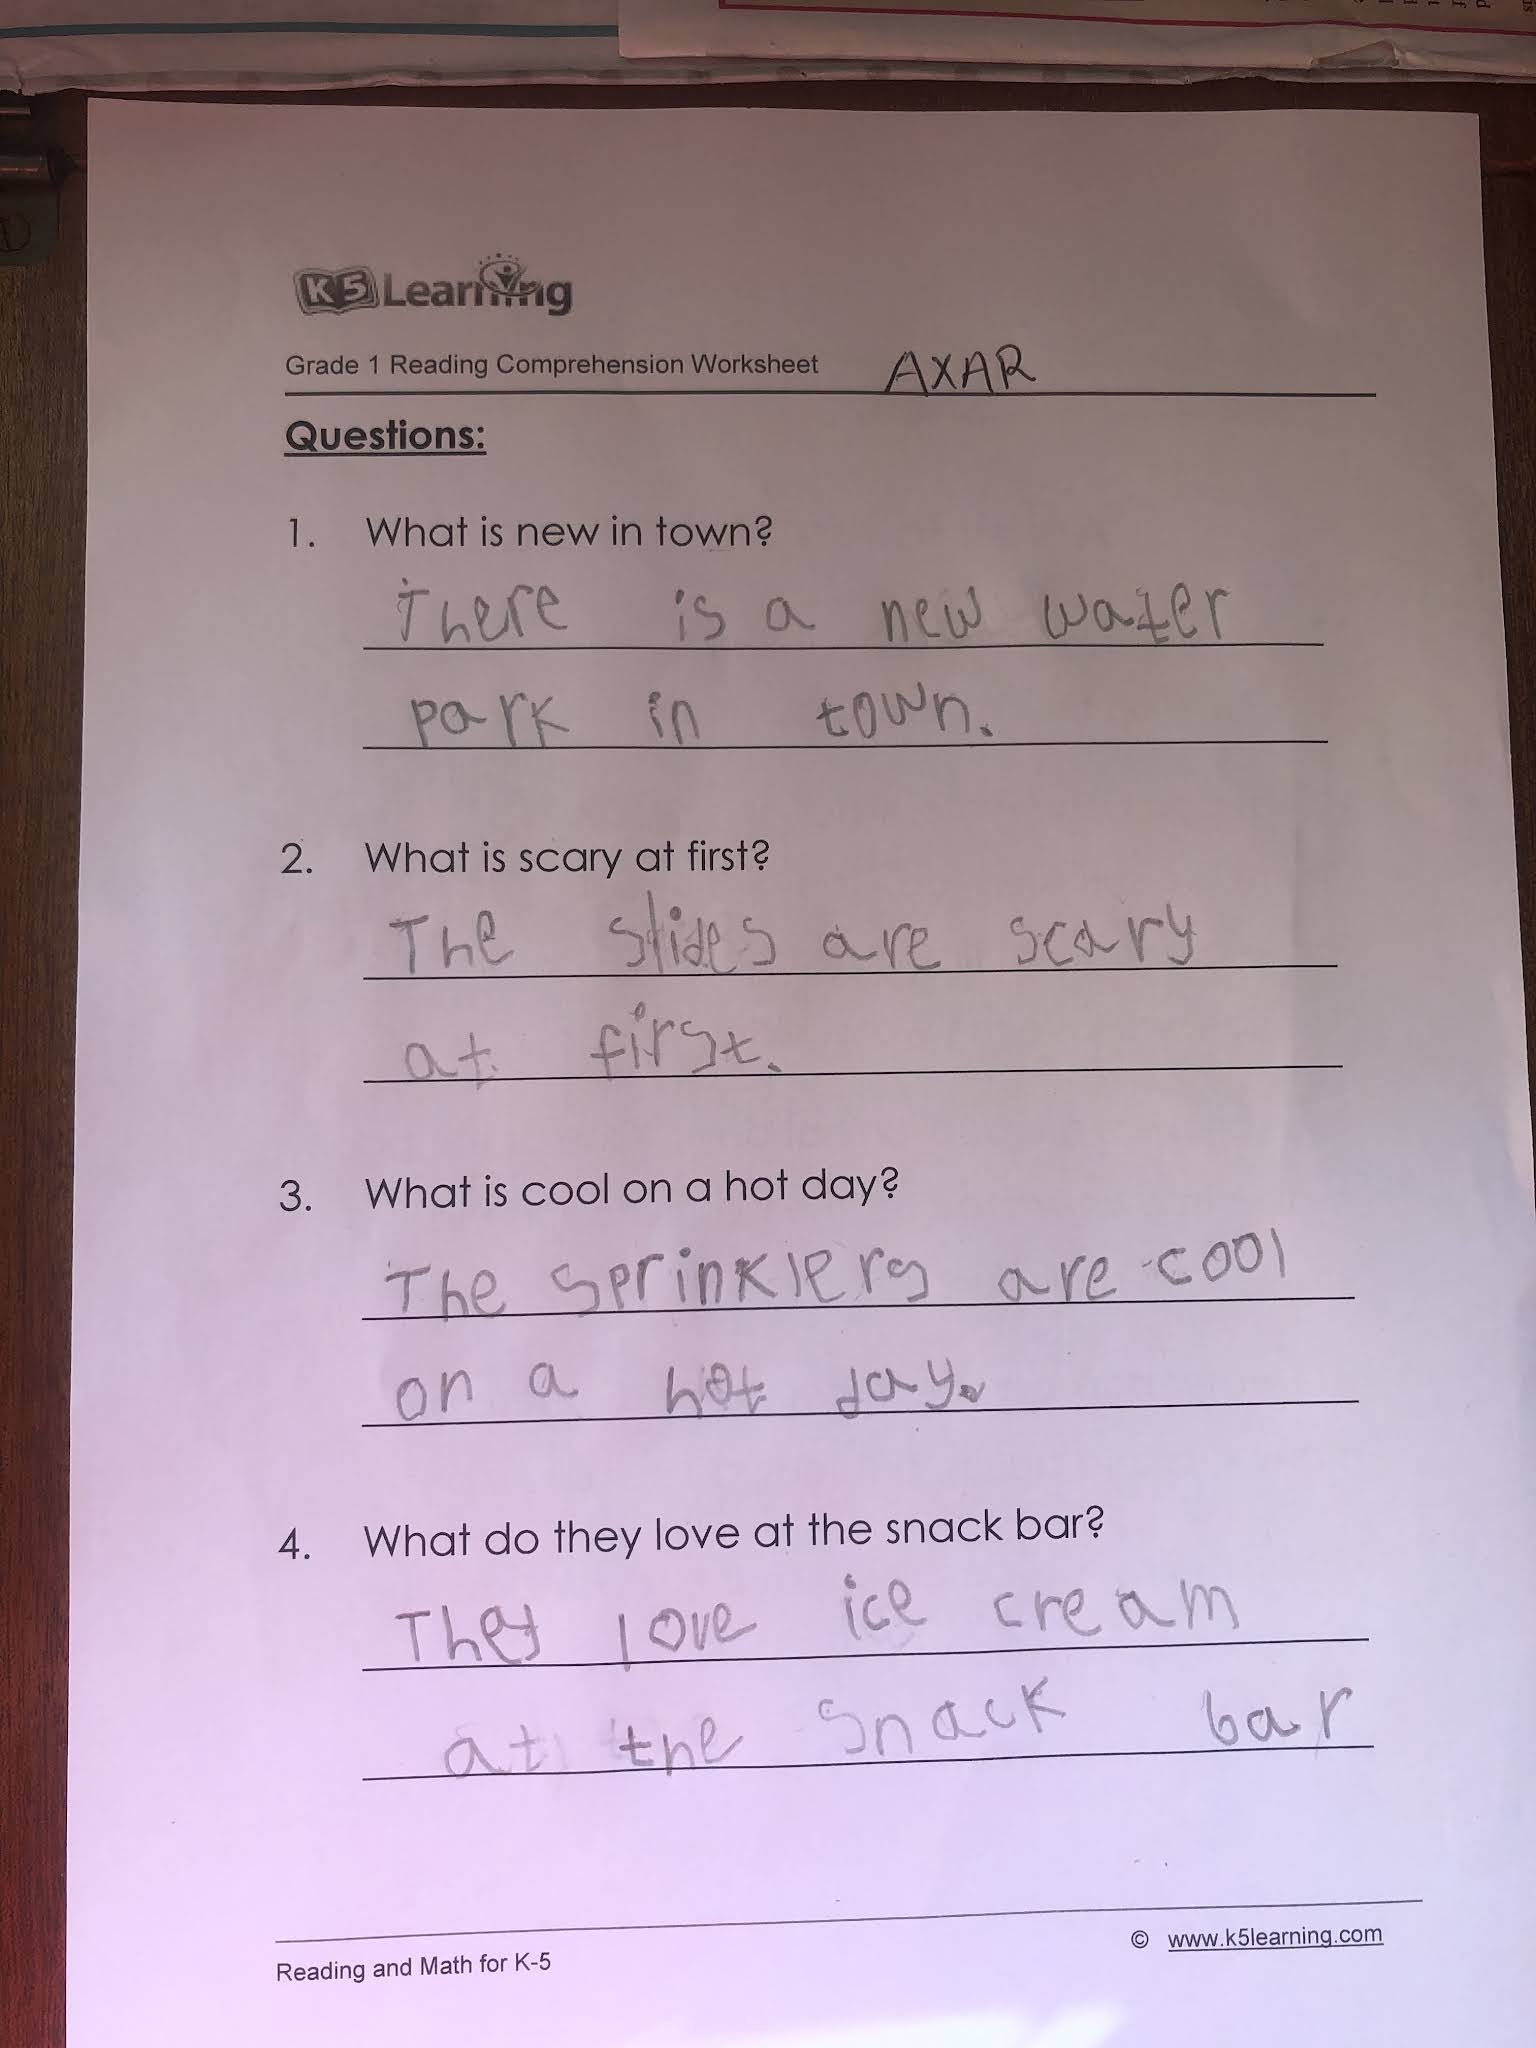 K5 Learning
Grade 1 Reading Comprehension Worksheet AXAR
Questions:
1. What is new in town?
There is a new water
park in town.
2. What is scary at first?
The slides are scary
at first.
3. What is cool on a hot day?
The sprinklers are cool
on a hot day.
4. What do they love at the snack bar?
They love ice cream
at the snack bar
Reading and Math for K-5
© www.k5learning.com